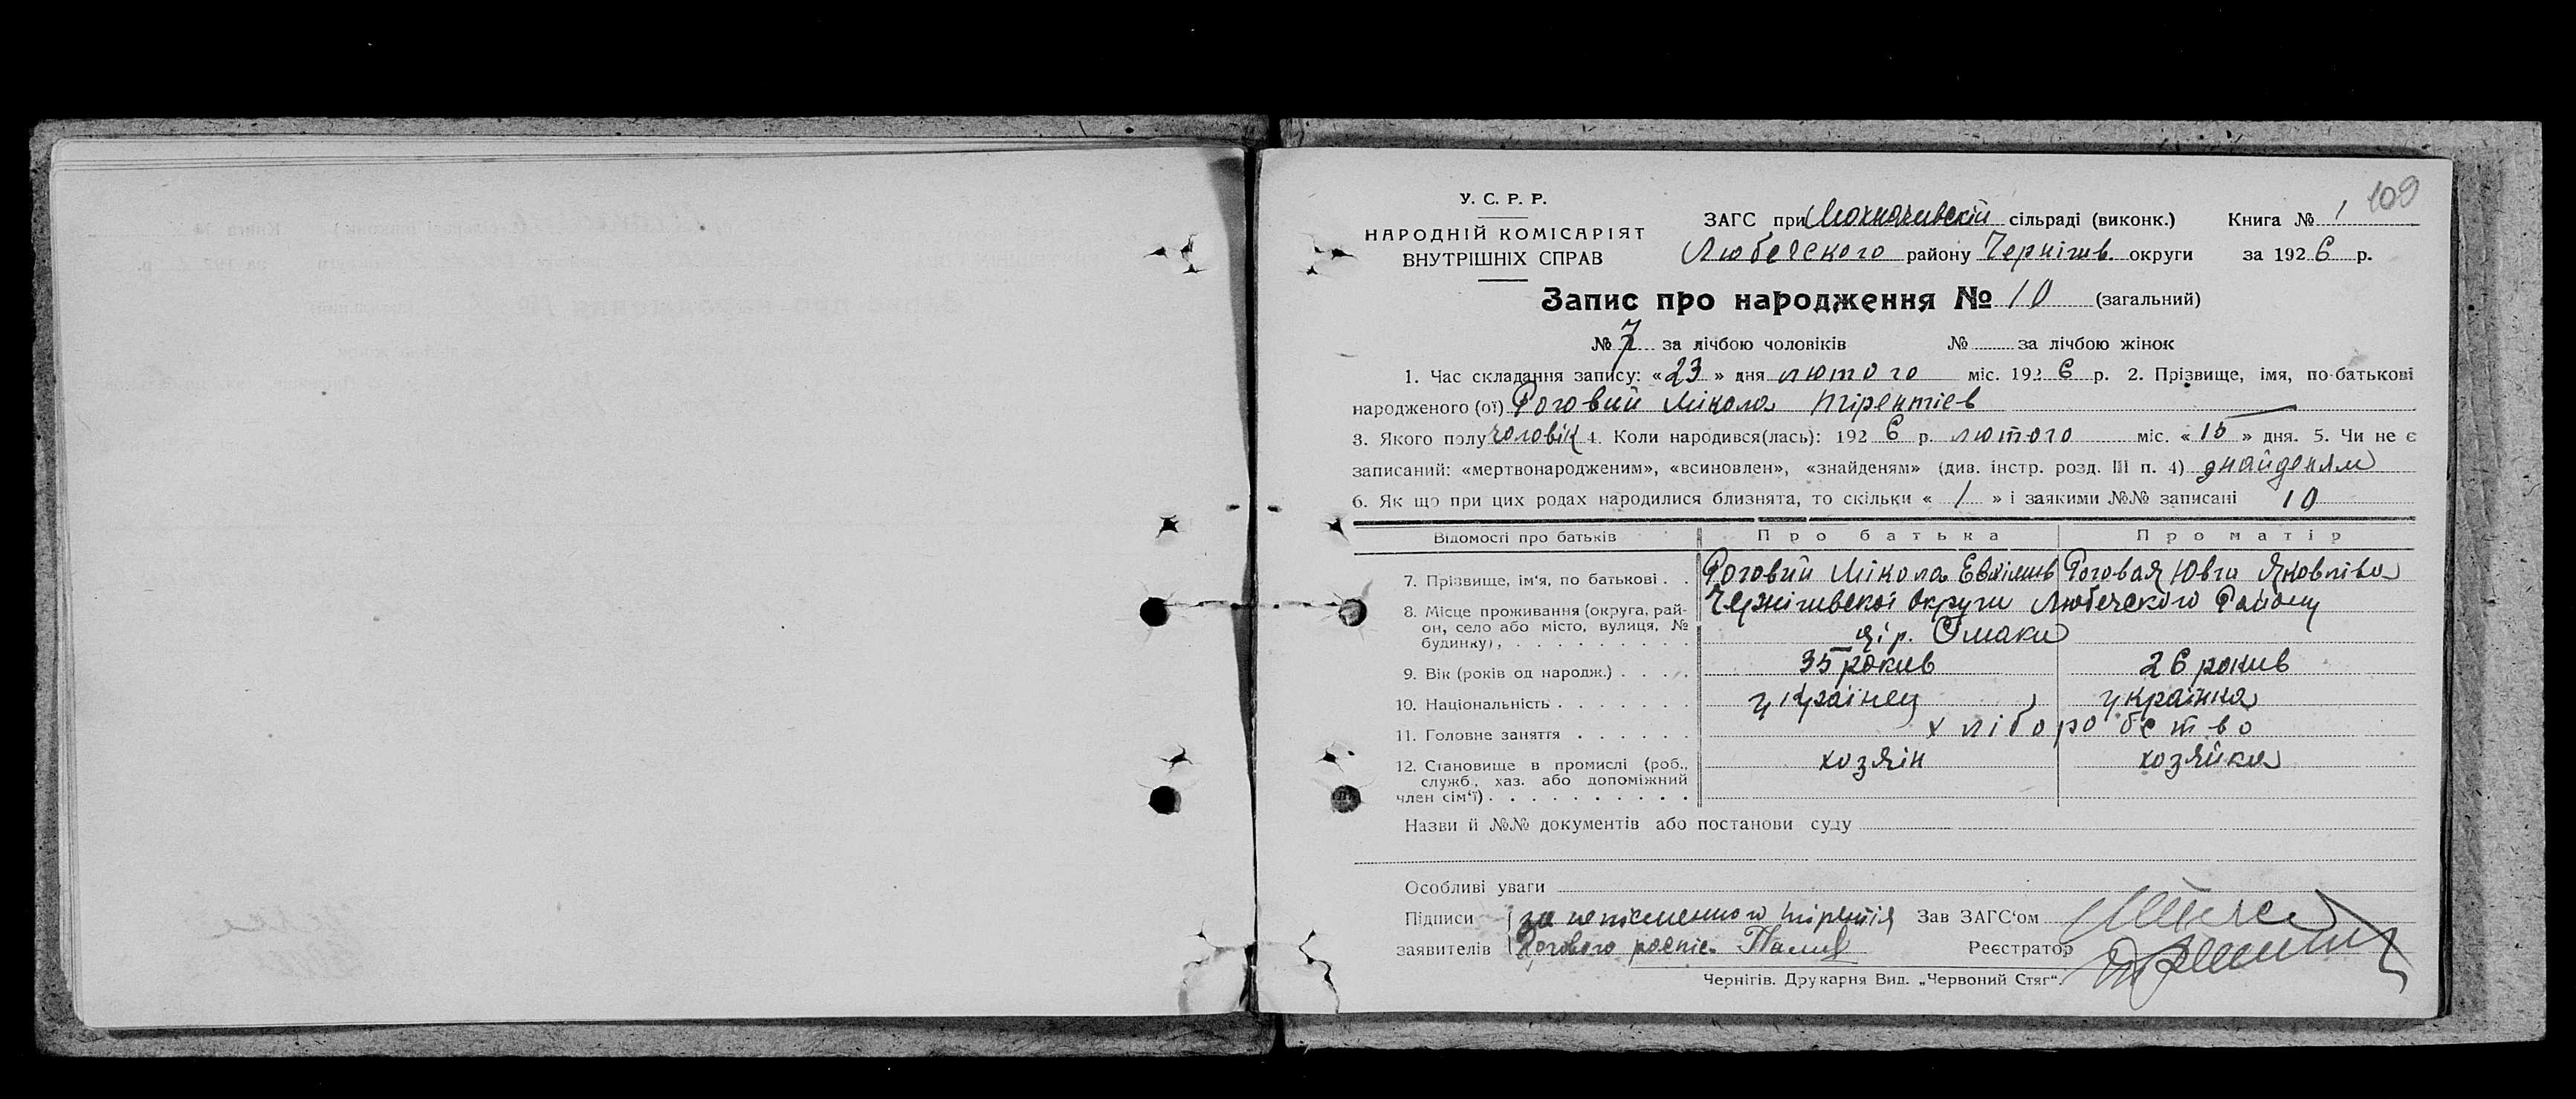 109
У. С. Р. Р.
НАРОДНІЙ КОМІСАРІЯТ
ВНУТРІШНІХ СПРАВ
ЗАГС при Мохначивскій сільраді (виконк.) Книга № 1
Любечского району Чернігив. округи за 1926 р.
Запис про народження № 10 (загальний)
№ 7 за лічбою чоловіків № за лічбою жінок
1. Час складання запису: «23» дня лютого міс. 1926 р. 2. Прізвище, імя, по-батькові
народженого (ої) Роговий Мікола Тірентіев
3. Якого полу чоловік 4. Коли народився(лась): 1926 р. лютого міс. «15» дня. 5. Чи не є
записаний: «мертвонародженим», «всиновлен», «знайденям» (див. інстр. розд. III п. 4) знайденям
6. Як що при цих родах народилися близнята, то скільки «1» і заякими №№ записані 10
Відомості про батьків Про батька Про матір
7. Прізвище, ім'я, по батькові . . Роговий Мікола Роговая Ювга Яковліва
8. Місце проживання (округа, район, село або місто, вулиця, № будинку), Чернігивскоі округи Любечского Району
дір. Смаки
9. Вік (років од народж.) . . . . 35 рокив 26 рокив
10. Національність . . . . . . . українец українка
11. Головне заняття . . . . . . хліборобство
12. Становище в промислі (роб., хозяін хозяйка
служб., хаз. або допоміжний
член сім'ї) . . . . . . . . . .
Назви й №№ документів або постанови суду
Особливі уваги
Підписи за неписменного Тірентія Зав ЗАГС'ом
заявителів Рогового роспіс. Реєстратор
Чернігів. Друкарня Вид. „Червоний Стяг".